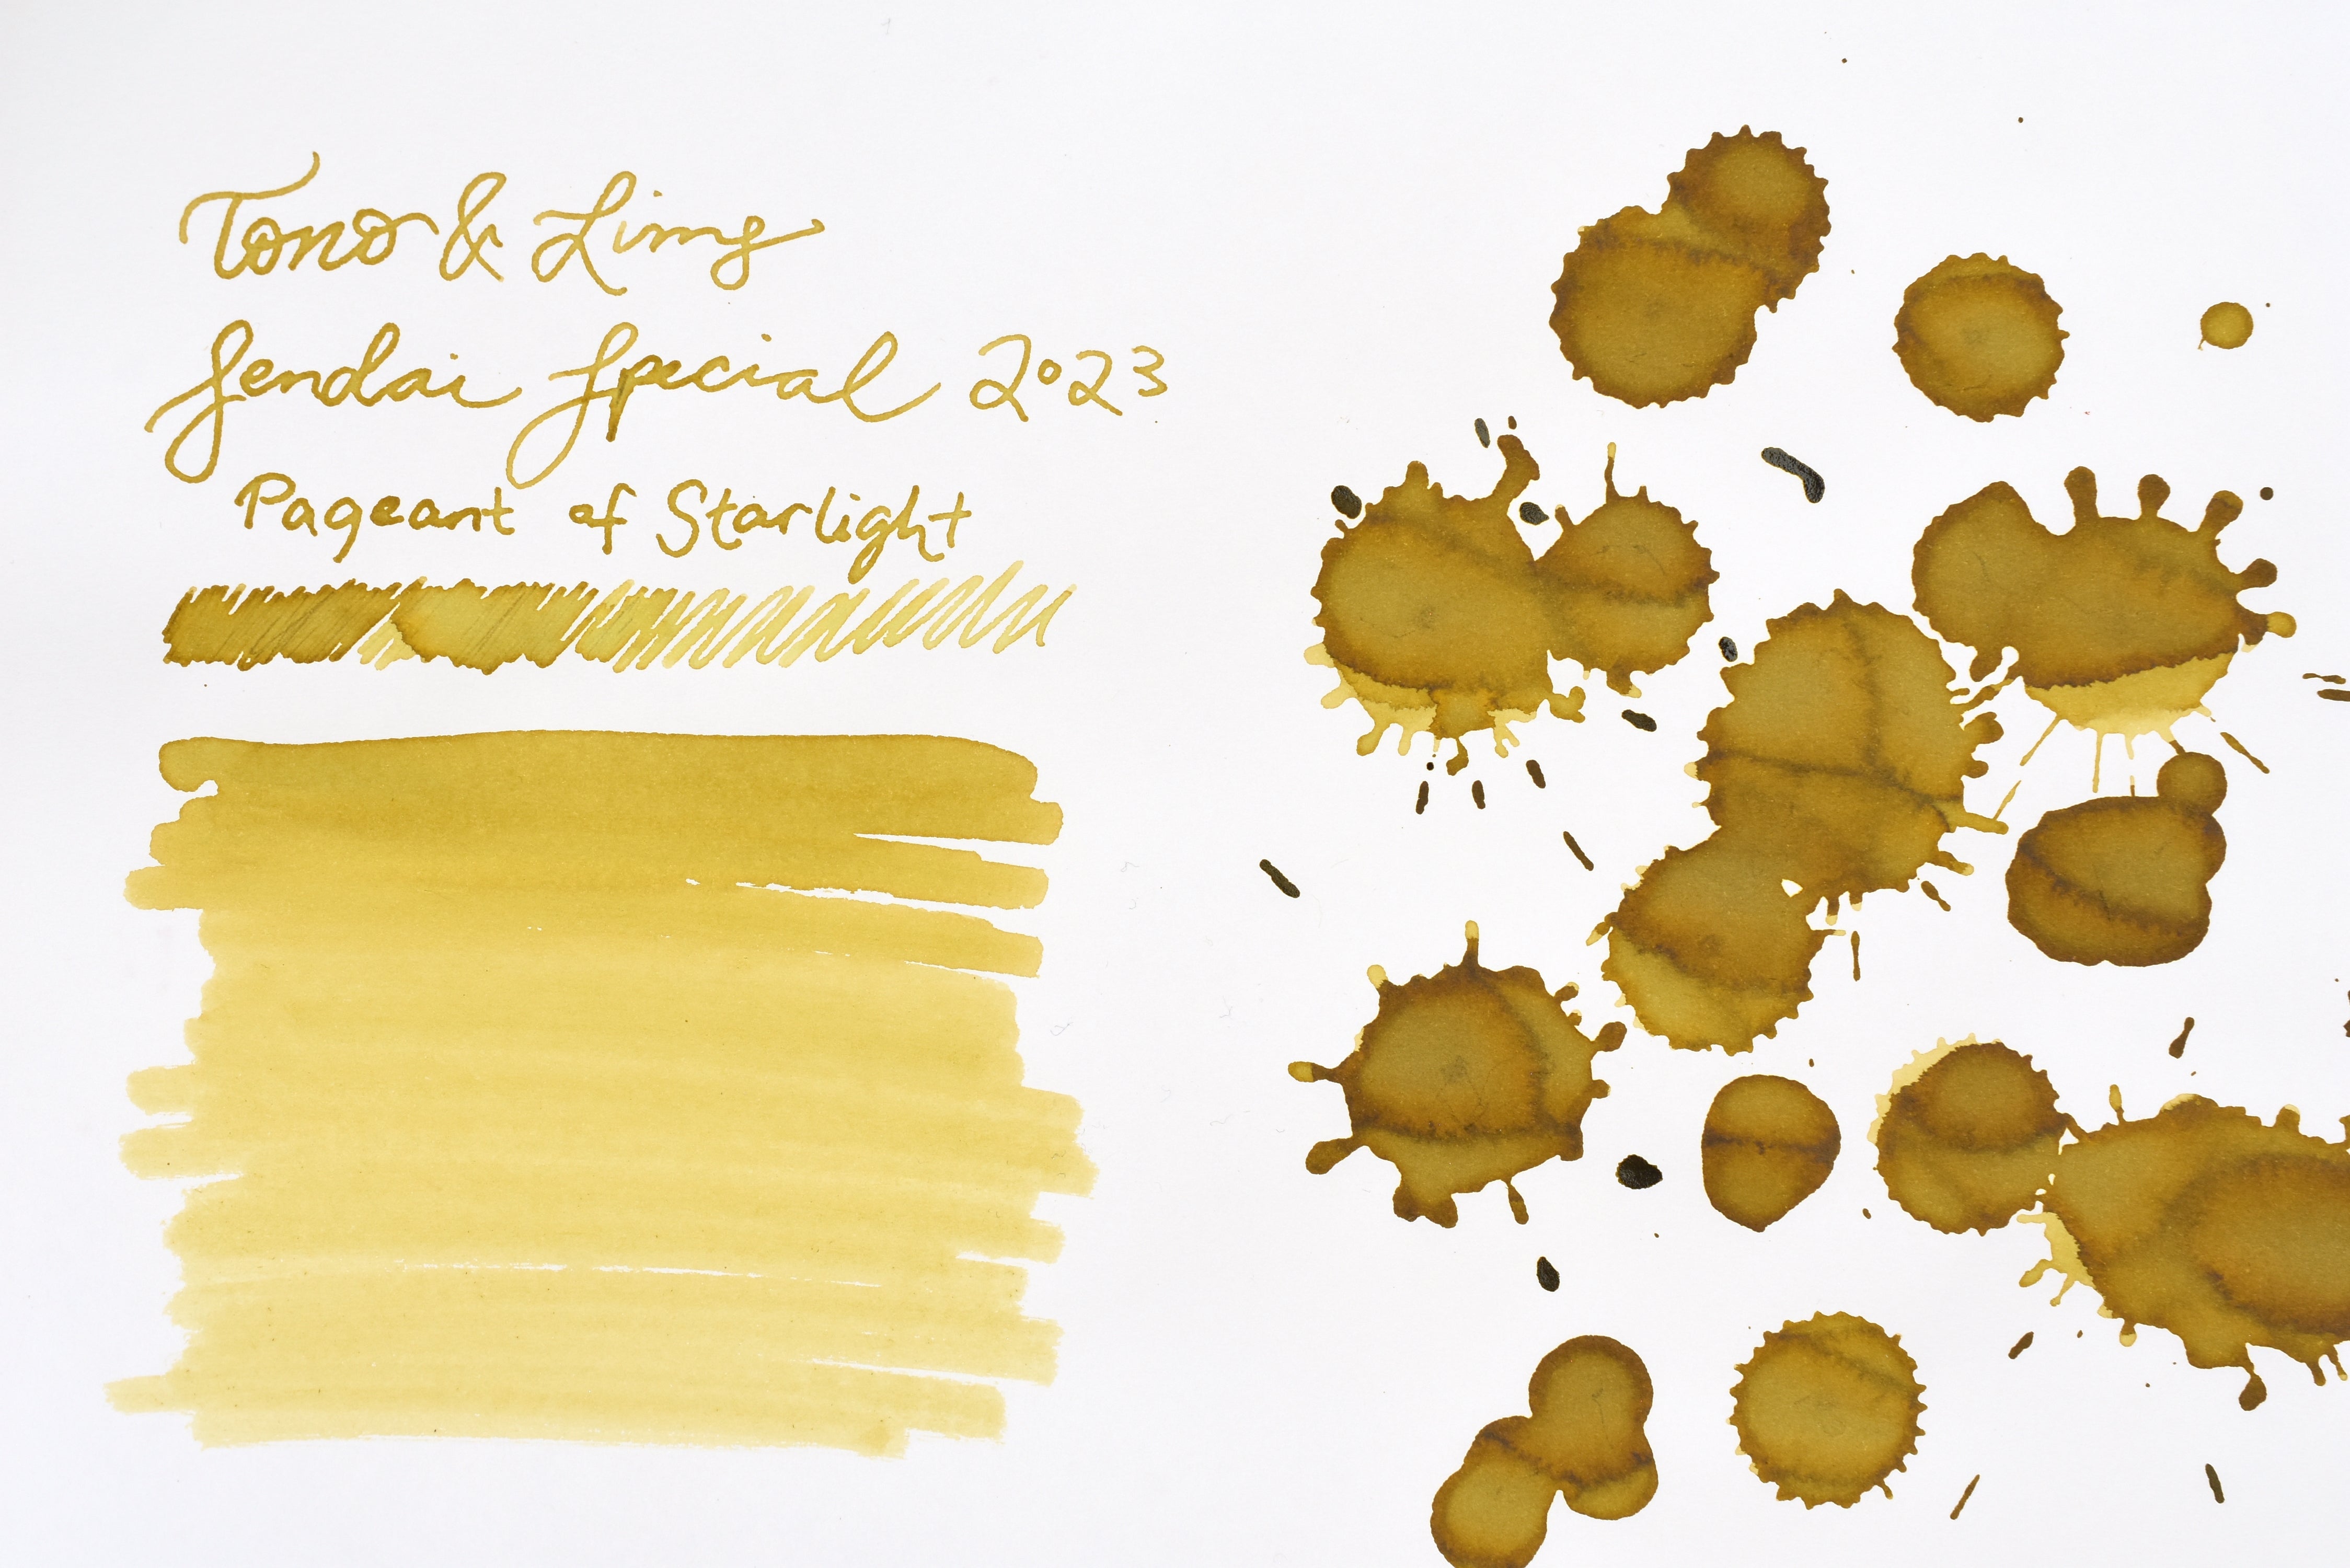 Tono & Lims
Sendai Special 2023
Pageant of Starlight